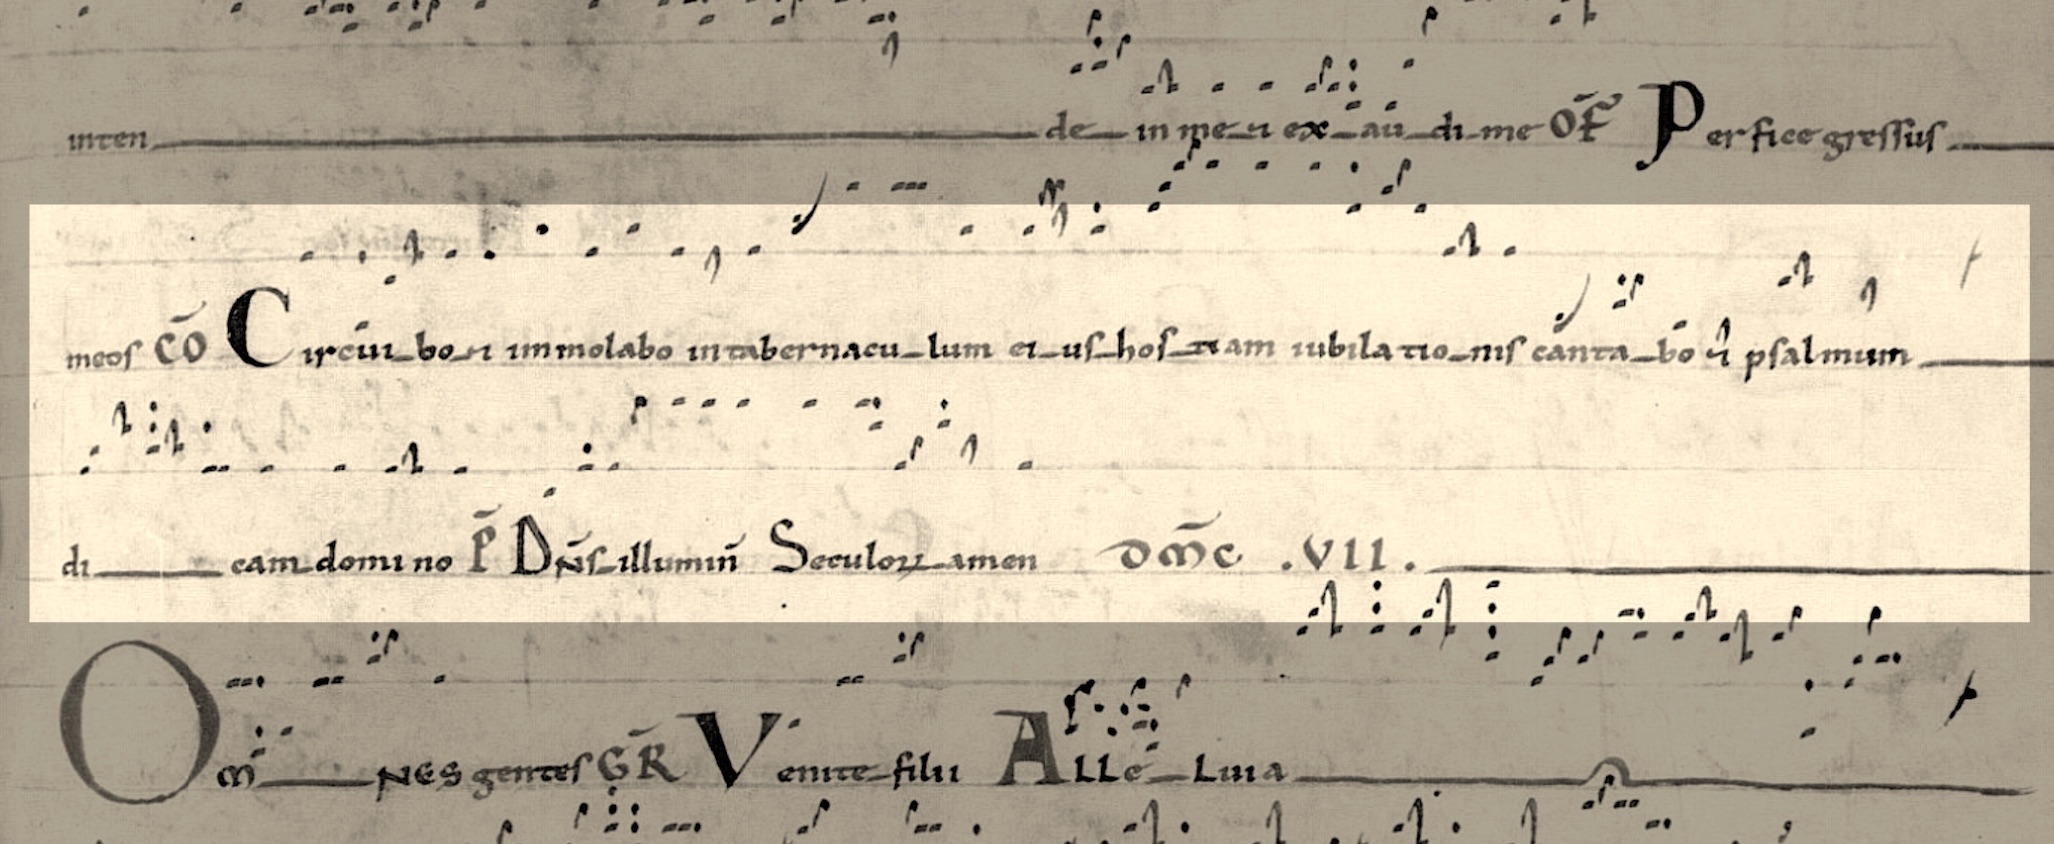 inten de in me et exaudi me Of Perfice gressus
meos Cō Circuibo et immolabo in tabernaculum eius hostiam iubilationis cantabo et psalmum
dicam domino P̄ Dn̄s illumin̄ Seculoꝝ amen Dom̄c .VII.
Omnes gentes GR̄ Venite filii Alleluia